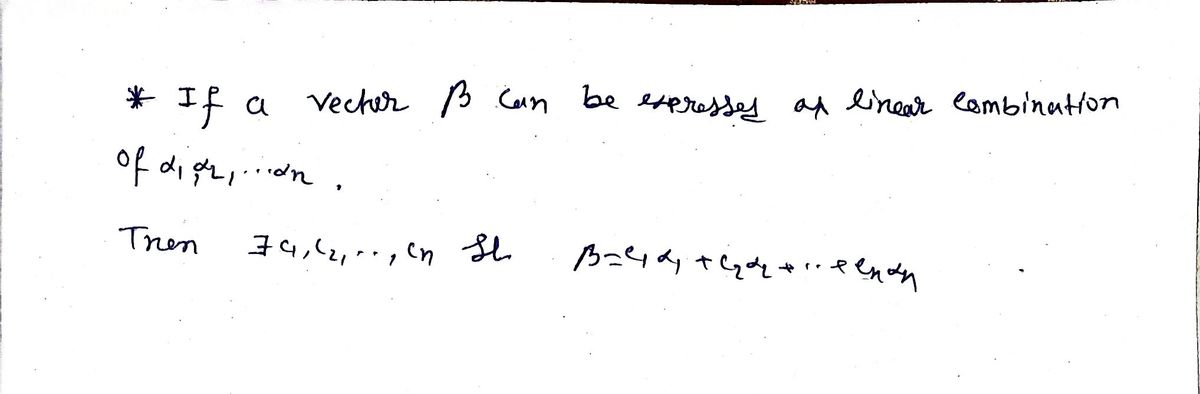 * If a vector β can be expresses as linear combination
of α1, α2, ...αn.
Then ∃ c1, c2, .., cn st β=c1α1 + c2α2 + .. + cnαn